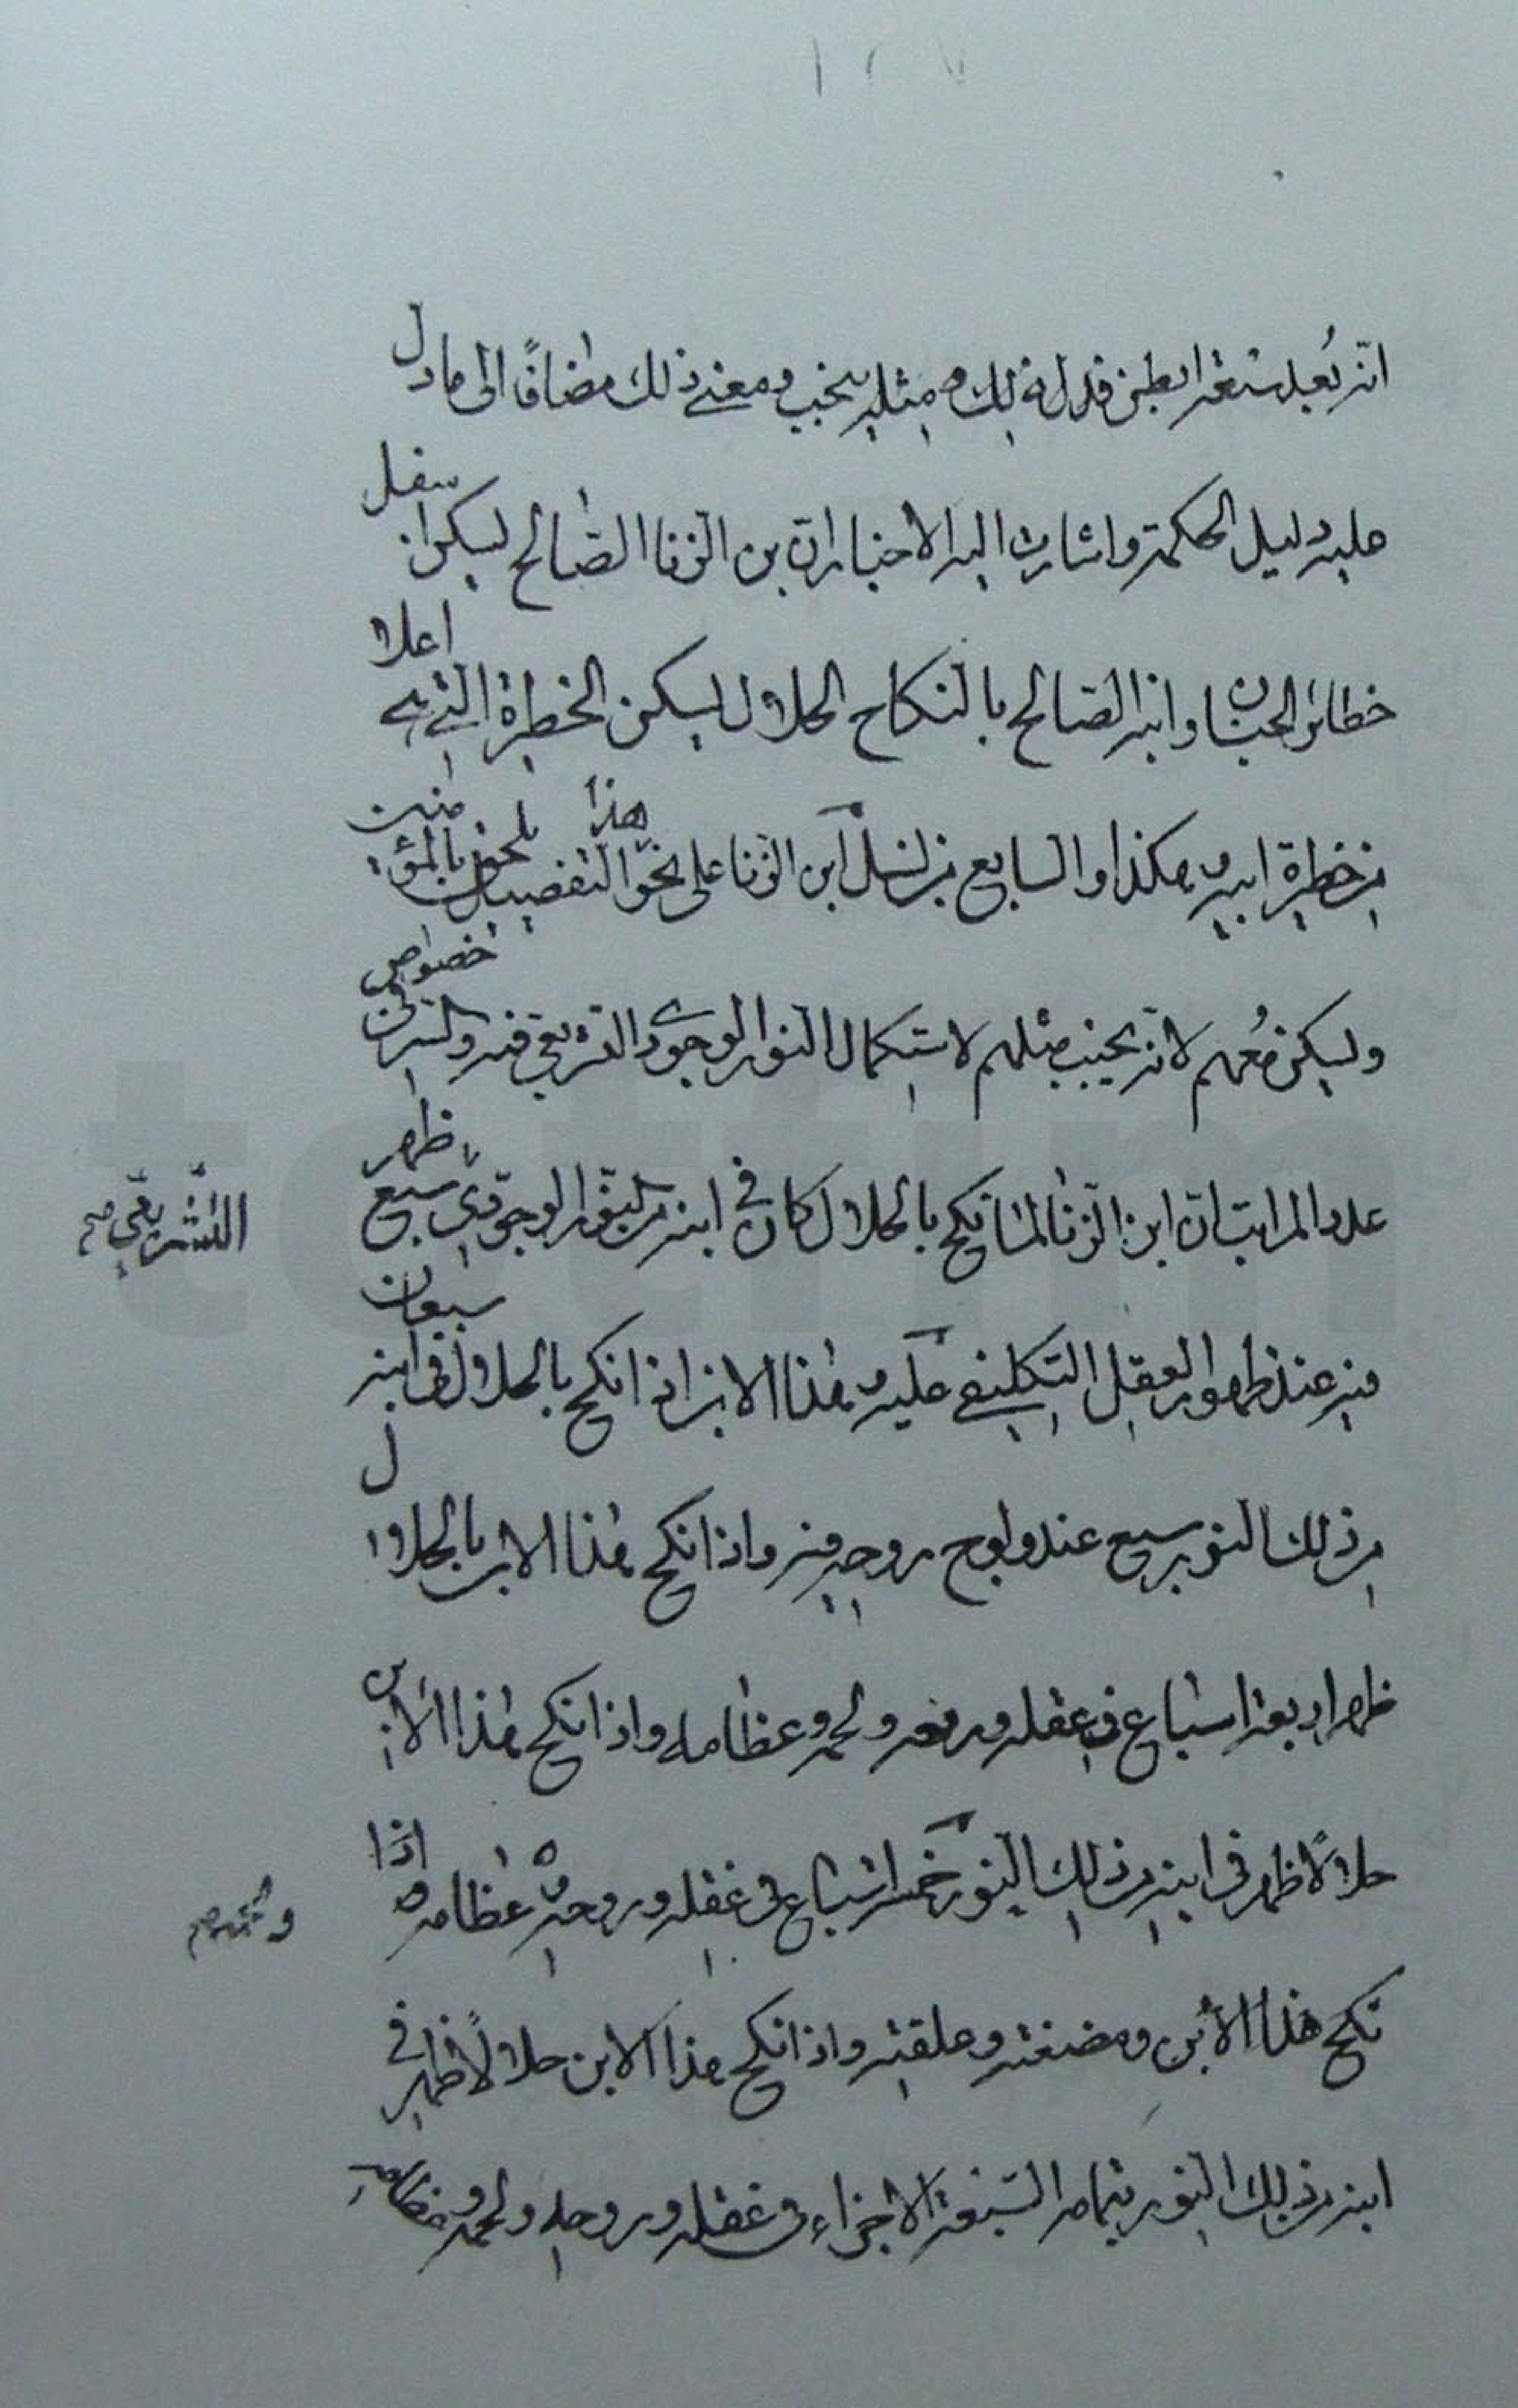 انه بعد سبعة ابطن فدل ذلك ومثله ينجب ومعنى ذلك مضافًا الى ما دل
عليه دليل الحكمة واشارت اليه الاخبار ان بن الزنا الصالح ليسكن اسفل
خطائر الجنان وابنه الصالح بالنكاح الحلال ليسكن الخطيرة التى هى اعلا
من خطيرة ابيه وهكذا والسابع من نسل ابن الزنا على نحو هذا التفصيل يلحق بالمؤمنين
وليسكن معهم لانه ينجب مثلهم لاستكمال النور الوجودى التشريعى فيه والسر فى خصوص
عدد المراتب ان ابن الزنا لما نكح بالحلال كان فى ابنه من النور الوجودى سبع ظهر
التشريعى صح
فيه عند ظهور العقل التكليفى عليه وهذا الابن اذا نكح بالحلال ظهر فى ابنه سبعان
من ذلك النور سبع عند ولوج روحه فيه واذا نكح هذا الابن بالحلال
ظهر اربعة اسباع فى عقله وروحه ولحمه وعظامه واذا نكح هذا الابن
حلالًا ظهر فى ابنه من ذلك النور خمسة اسباع فى عقله وروحه وعظامه اذا
ولحمه صح
نكح هذا الابن ومضغته وعلقته واذا نكح هذا الابن حلالًا ظهر فى
ابنه من ذلك النور تمام السبعة الاجزاء فى عقله وروحه ولحمه وعظامه